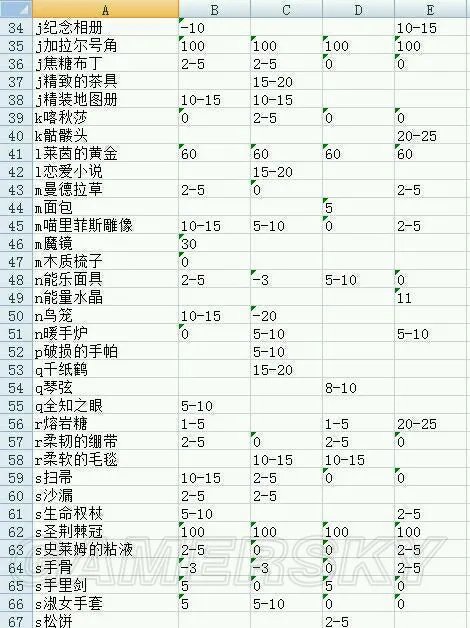 A B C D E
34 j纪念相册 -10 10-15
35 j加拉尔号角 100 100 100 100
36 j焦糖布丁 2-5 2-5 0 0
37 j精致的茶具 15-20
38 j精装地图册 10-15 10-15
39 k喀秋莎 0 2-5 0 0
40 k骷髅头 20-25
41 l莱茵的黄金 60 60 60 60
42 l恋爱小说 15-20
43 m曼德拉草 2-5 0 2-5
44 m面包 5
45 m喵里菲斯雕像 10-15 5-10 0 2-5
46 m魔镜 30
47 m木质梳子 0
48 n能乐面具 2-5 -3 5-10 0
49 n能量水晶 11
50 n鸟笼 10-15 -20
51 n暖手炉 0 5-10 5-10
52 p破损的手帕 5-10
53 q千纸鹤 15-20
54 q琴弦 8-10
55 q全知之眼 5-10
56 r熔岩糖 1-5 1-5 20-25
57 r柔韧的绷带 2-5 0 2-5 0
58 r柔软的毛毯 10-15 10-15
59 s扫帚 10-15 2-5 0 0
60 s沙漏 2-5 2-5
61 s生命权杖 5-10 2-5
62 s圣荆棘冠 100 100 100 100
63 s史莱姆的粘液 2-5 0 0 2-5
64 s手骨 -3 -3 0 2-5
65 s手里剑 5 0 5 0
66 s淑女手套 5 5-10 0 0
67 s松饼 2-5
GAMERSKY